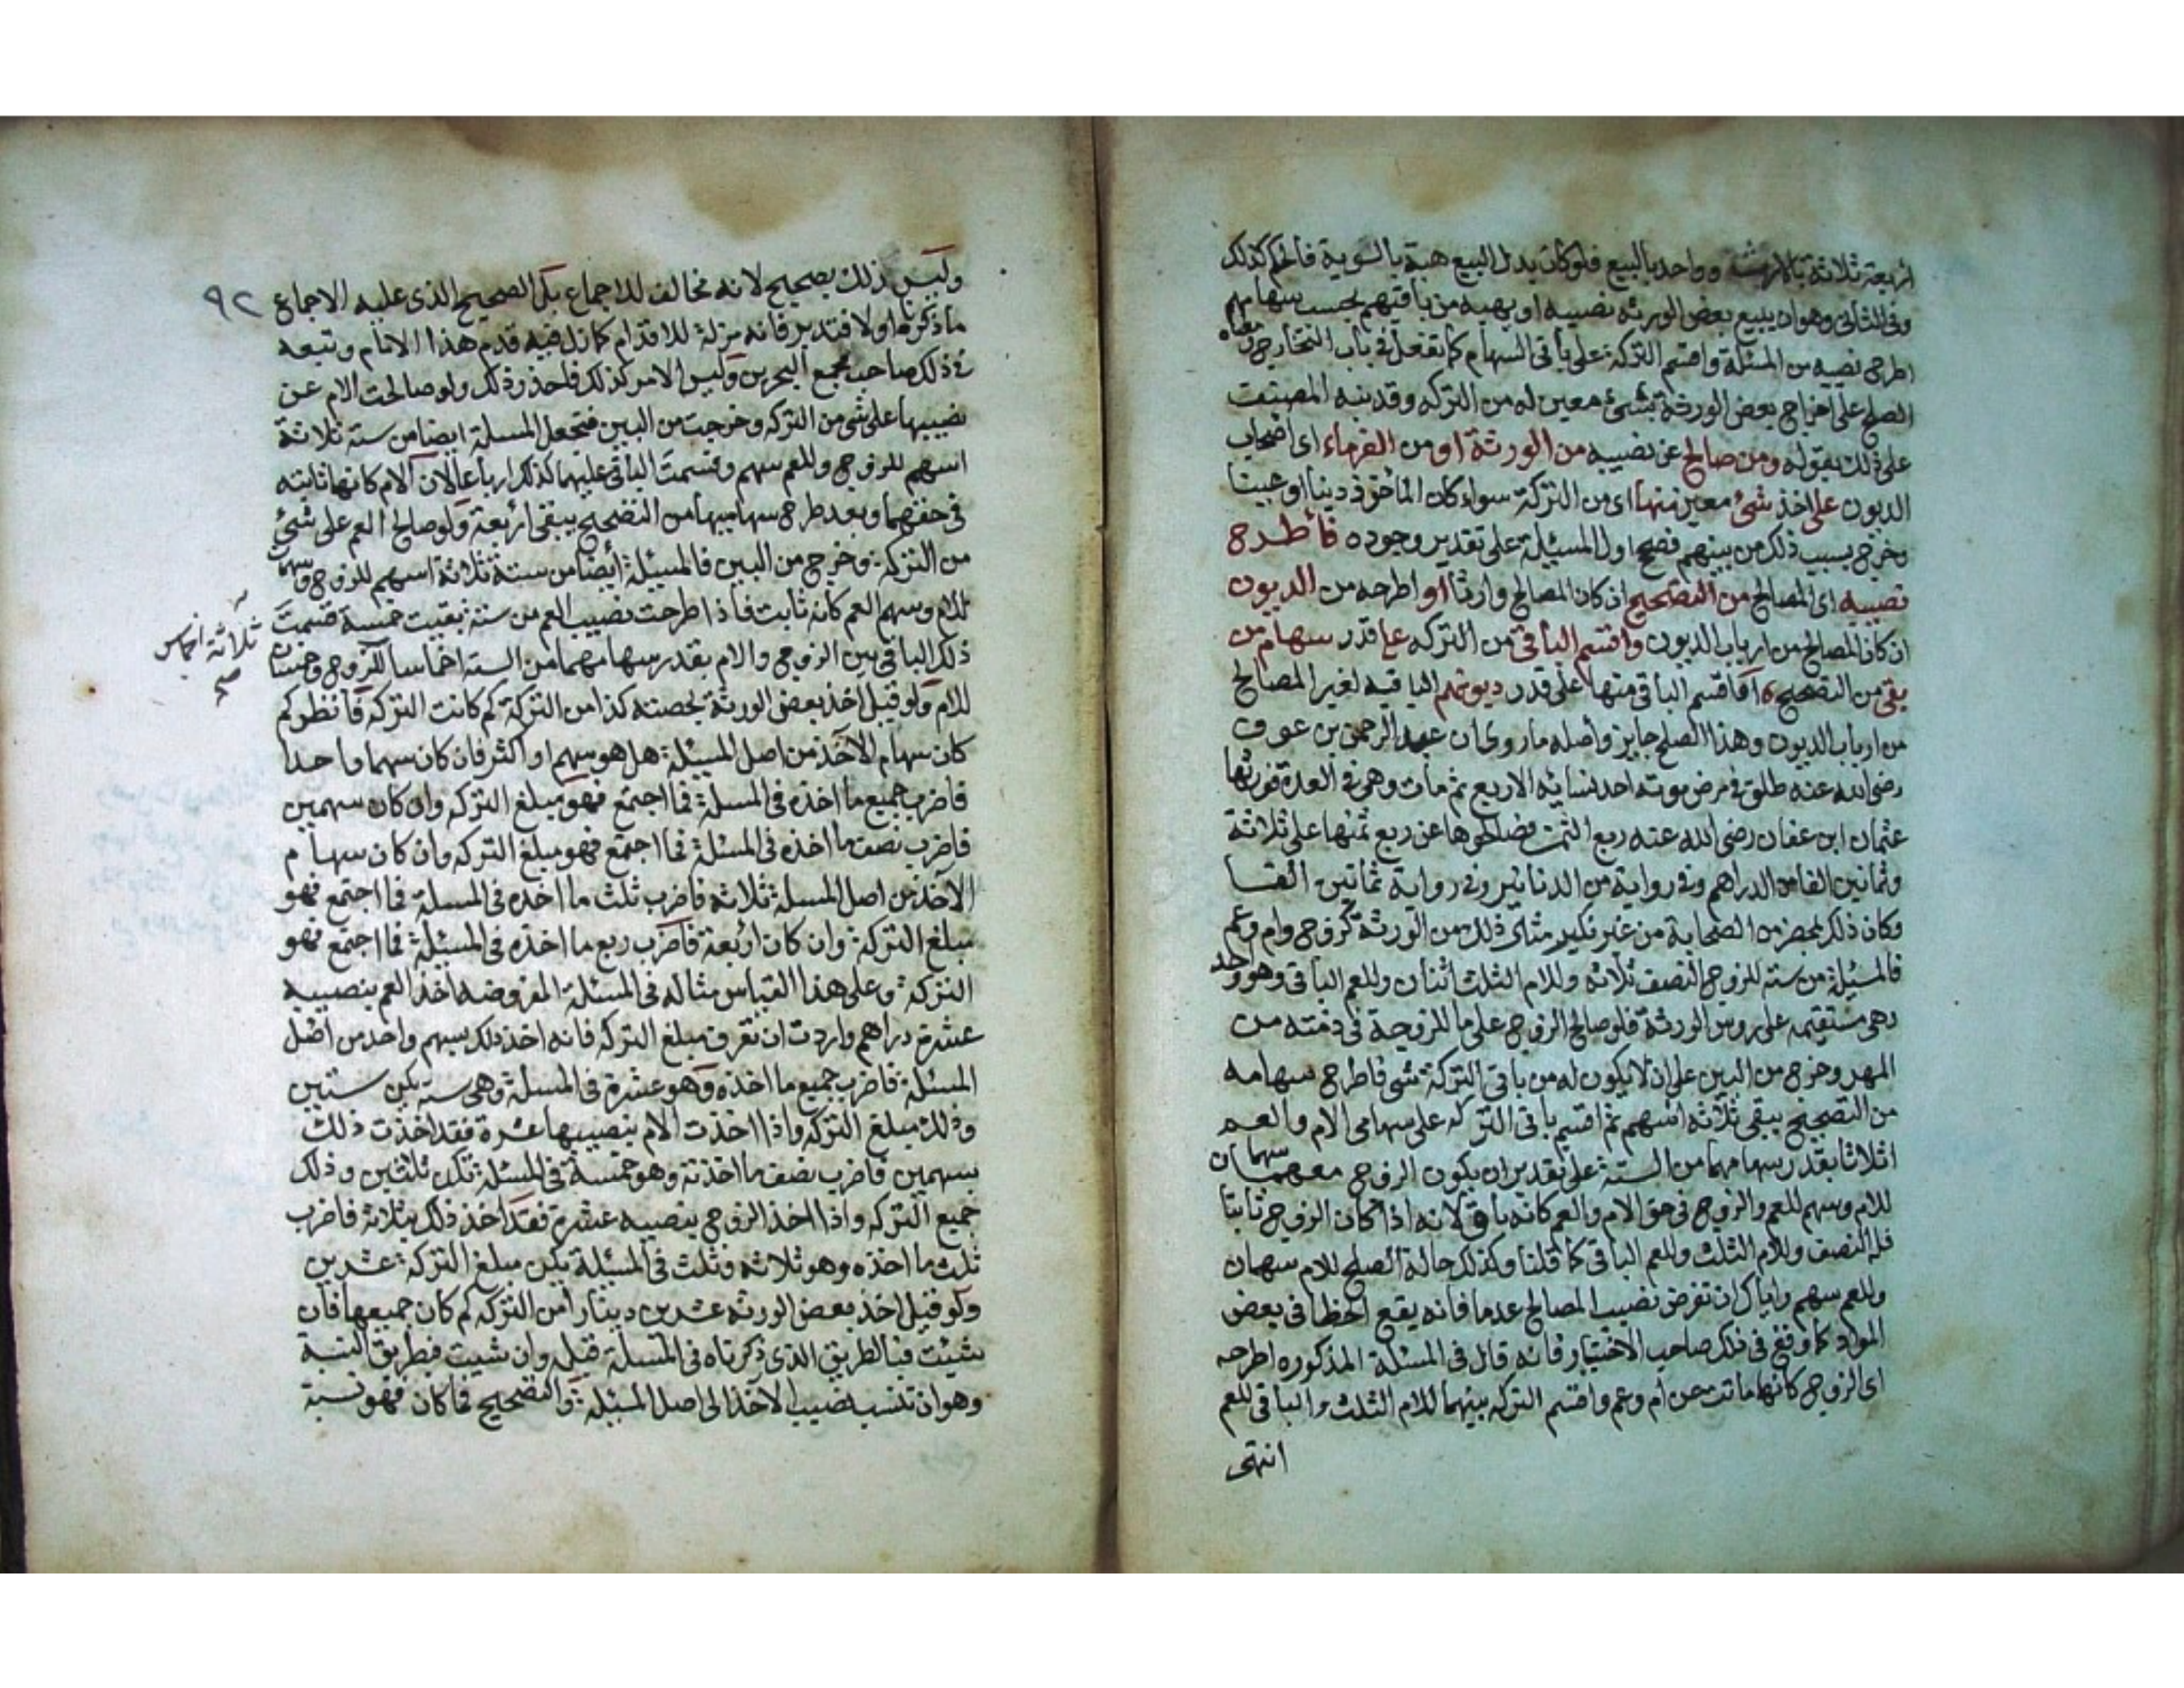 اربعة ثلاثة بالارث وواحد بالبيع فلو كان بدل البيع هبة بالسوية فالحكم كذلك
وفي الثاني وهو ان يبيع بعض الورثه نصيبه او يهبه من باقيهم بحسب سهامهم
اطرح نصيبه من المسئلة واقسم التركة على باقي السهام كما تفعل في باب التخارج ومعناه
الصلح على اخراج بعض الورثة بشئ معين له من التركه وقد نبه المصنف
على ذلك بقوله ومن صالح عن نصيبه من الورثة او من الغرماء اى اصحاب
الديون على اخذ شئ معين منها اى من التركة سواء كان المأخوذ دينا او عينا
وخرج بسبب ذلك من بينهم فصحح اولا المسئلة على تقدير وجوده فأطرح
نصيبه اى المصالح من التصحيح ان كان المصالح وارثا او اطرحه من الديون
ان كان المصالح من ارباب الديون واقسم الباقي من التركه على قدر سهام من
بقي من التصحيح او اقسم الباقي منها على قدر ديونهم الباقيه لغير المصالح
من ارباب الديون وهذا الصلح جايز وأصله ما روى ان عبد الرحمن بن عوف
رضي الله عنه طلق في مرض موته احد نسائه الاربع ثم مات وهي في العدة فورثها
عثمان ابن عفان رضي الله عنه ربع الثمن فصالحوها عن ربع ثمنها على ثلاثة
وثمانين الفا من الدراهم وفي رواية من الدنانير وفي رواية ثمانين الفا
وكان ذلك بمحضر من الصحابة من غير نكير مثال ذلك من الورثة كزوج وام وعم
فالمسئلة من سته للزوج النصف ثلاثه وللام الثلث اثنان وللعم الباقي وهو واحد
وهي مستقيمه على روس الورثة فلو صالح الزوج على ما للزوجة في ذمته من
المهر وخرج من البين على ان لا يكون له من باقي التركة شي فاطرح سهامه
من التصحيح يبقى ثلاثه اسهم ثم اقسم باقي التركه على سهامي الام والعم
اثلاثا بقدر سهامهما من الستة على تقدير ان يكون الزوج معهما سهمان
للام وسهم للعم والزوج في حق الام والعم كانه باق لانه اذا كان الزوج ثابتا
فله النصف وللام الثلث وللعم الباقي كما قلنا وكذلك حالة الصلح للام سهمان
وللعم سهم واياك ان تفرض نصيب المصالح عدما فانه يقع الخطا في بعض
المواد كما وقع في ذلك صاحب الاختيار فانه قال في المسئلة المذكوره اطرحه
اى الزوج كانها ماتت عن أم وعم واقسم التركه بينهما للام الثلث والباقي للعم
انتهى
٩٢
وليس ذلك بصحيح لانه مخالف للاجماع بل الصحيح الذى عليه الاجماع
ما ذكرناه اولا فتدبر فانه مزلة للاقدام كما زل فيه قدم هذا الامام وتبعه
في ذلك صاحب مجمع البحرين وليس الامر كذلك فاحذر ذلك ولو صالحت الام عن
نصيبها على شي من التركه وخرجت من البين فتجعل المسلة ايضا من سته ثلاثة
اسهم للزوج وللعم سهم وقسمت الباقي عليهما كذلك ارباعا لان الام كانها ثابته
في حقهما وبعد طرح سهاميها من التصحيح يبقى اربعة ولو صالح العم على شئ
من التركة وخرج من البين فالمسئلة أيضا من ستة ثلاثة اسهم للزوج وسهمان
للام وسهم العم كانه ثابت فاذا طرحت نصيب العم من ستة بقيت خمسة قسمت
ذلك الباقي بين الزوج والام بقدر سهامهما من السته اخماسا للزوج وخمسان
ثلاثة اخماس
صح
للام ولو قيل اخذ بعض الورثة بحصته كذا من التركة كم كانت التركه فأنظر كم
كان سهام الآخذ من اصل المسئلة هل هو سهم او اكثر فان كان سهما واحدا
فاضرب جميع ما اخذه في المسلة فما اجتمع فهو مبلغ التركه وان كان سهمين
فاضرب نصف ما اخذه في المسئلة فما اجتمع فهو مبلغ التركه وان كان سهام
الآخذ من اصل المسلة ثلاثه فاضرب ثلث ما اخذه في المسلة فما اجتمع فهو
مبلغ التركة وان كان اربعة فاضرب ربع ما اخذه في المسئلة فما اجتمع فهو
التركة وعلى هذا القياس مثاله في المسئلة المفروضه اخذ العم بنصيبه
عشرة دراهم واردت ان تعرف مبلغ التركه فانه اخذ ذلك بسهم واحد من اصل
المسئلة فاضرب جميع ما اخذه وهو عشرة في المسلة وهي سته يكن ستين
وذلك مبلغ التركه واذا اخذت الام بنصيبها عشرة فقد اخذت ذلك
بسهمين فاضرب نصف ما اخذته وهو خمسة في المسئلة تكن ثلاثين وذلك
جميع التركه واذا اخذ الزوج بنصيبه عشرة فقد اخذ ذلك بثلاثة فاضرب
ثلث ما اخذه وهو ثلاثه وثلث في المسئلة يكن مبلغ التركة عشرين
ولو قيل اخذ بعض الورثه عشرين دينارا من التركه كم كان جميعها فان
شيئت فبالطريق الذى ذكرناه في المسلة قبله وان شيت فطريق النسبة
وهو ان تنسب نصيب الآخذ الى اصل المسئلة او التصحيح فما كان فهو نسبة